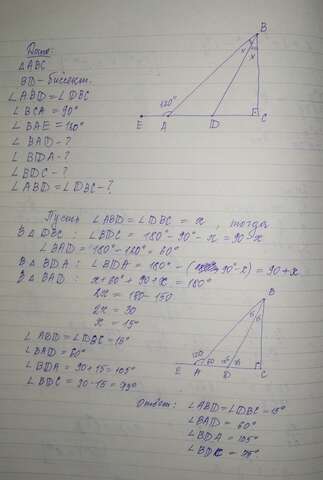 Дано:
△ABC
BD - биссект.
∠ABD = ∠DBC
∠BCA = 90°
∠BAE = 120°
∠BAD - ?
∠BDA - ?
∠BDC - ?
∠ABD = ∠DBC - ?
B
x x
120°
E A D C
Пусть ∠ABD = ∠DBC = x, тогда
В △ DBC : ∠BDC = 180° - 90° - x = 90 - x
∠BAD = 180° - 120° = 60°
В △ BDA : ∠BDA = 180° - (90° - x) = 90 + x
В △ BAD : x + 60° + 90 + x = 180°
2x = 180 - 150
2x = 30
x = 15°
∠ABD = ∠DBC - 15°
∠BAD = 60°
∠BDA = 90 + 15 = 105°
∠BDC = 90 - 15 = 75°
B
15 15
120 60
E A D C
Ответ: ∠ABD = ∠DBC - 15°
∠BAD = 60°
∠BDA = 105°
∠BDC = 75°